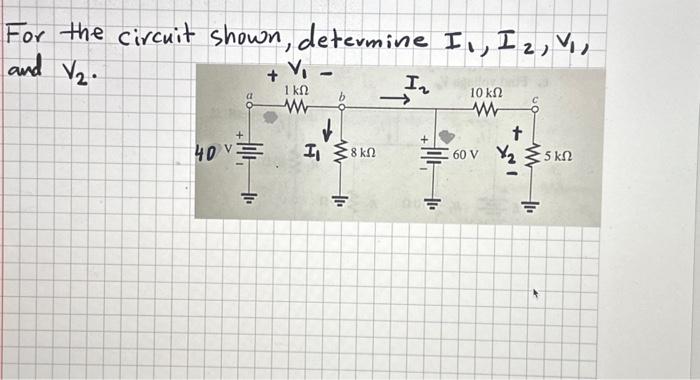 For the circuit shown, determine I₁, I₂, V₁,
and V₂.
+ V₁ -
I₂
1 kΩ
10 kΩ
a
b
c
+
40 V
-
I₁
8 kΩ
+
60 V
-
+
V₂
-
5 kΩ